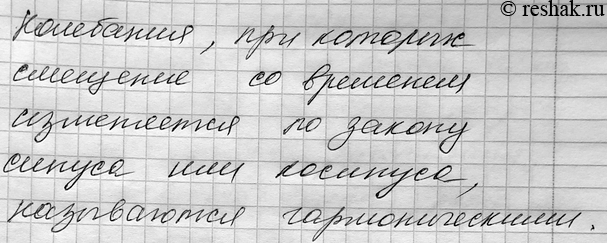 © reshak.ru
Колебания, при которых
смещение со временем
изменяется по закону
синуса или косинуса,
называются гармоническими.